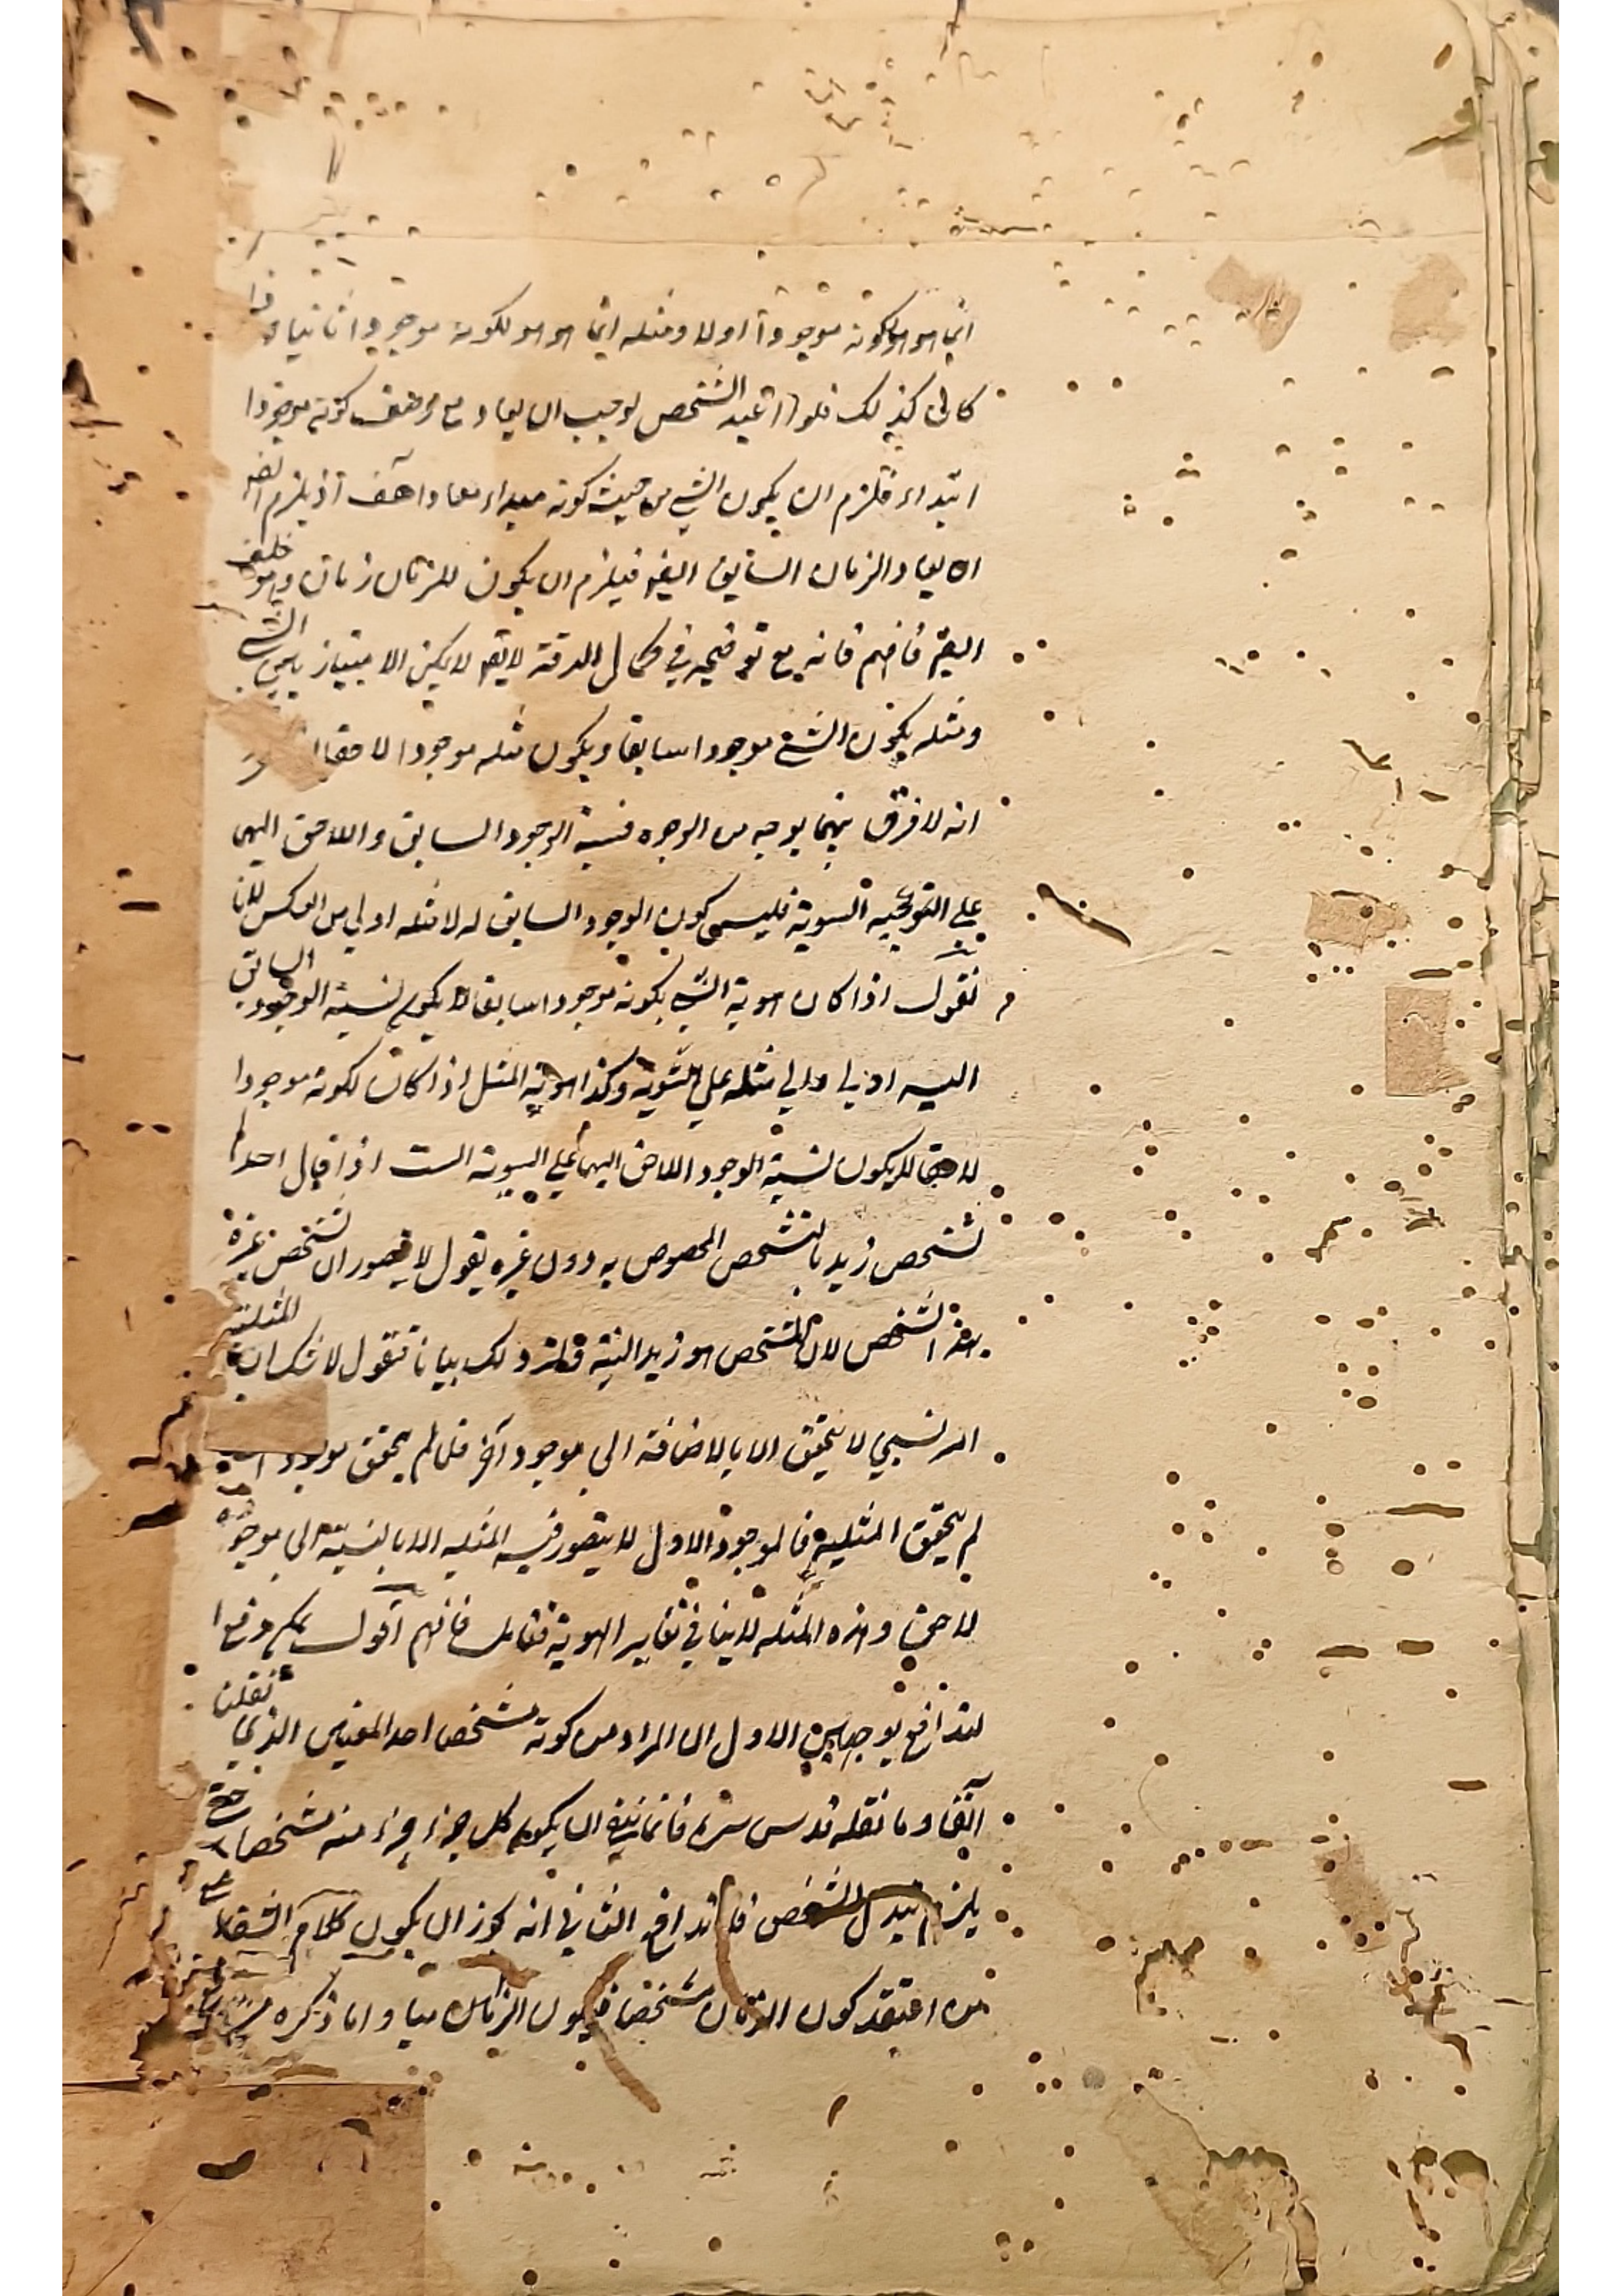 انما هو هو لكونه موجودا اولا ومثله انما هو هو لكونه موجودا ثانيا
كان كذلك فلو اعيد الشخص لوجب ان يعاد مع وصف كونه موجودا
ابتداء فلزم ان يكون الشي من حيث كونه مبداء معادا هف اذ يلزم
ان يعاد الزمان السابق ايضا فيلزم ان يكون للزمان زمان وهو خلف
ايضا فافهم فانه مع توضيحه في كمال الدقة لا يقال يمكن الامتياز بين الشي
ومثله بكون الشي موجودا سابقا وبكون مثله موجودا لاحقا
انه لا فرق بينهما بوجه من الوجوه فنسبة الوجود السابق واللاحق اليهما
على السوية فليس كون الوجود السابق له لا مثله اولى من العكس لانا
نقول اذا كان هوية الشي بكونه موجودا سابقا يكون نسبة الوجود السابق
اليه اولى والى مثله على السوية وكذا هوية المثل اذا كان لكونه موجودا
لاحقا لم يكون نسبة الوجود اللاحق اليهما على السوية الست اذا قال احد لم
تشخص زيد بالتشخص المخصوص به دون غيره يقول لا يتصور ان تشخص غيره
بهذا التشخص لان المتشخص هو زيد البتة ذلك بيانا فنقول لا شك ان المثلية
امر نسبي لا يتحقق الا بالاضافة الى موجود آخر فما لم يتحقق موجود
لم يتحقق المثلية فالموجود الاول لا يتصور فيه المثلية الا بالنسبة الى موجود
لاحق وهذه المثلية لا ينافي تغاير الهوية فتأمل فافهم اقول يمكن دفع
التدافع بوجهين الاول ان المراد من كونه مشخصا احد المعنيين الذي نقلنا
آنفا وما نقله قدس سره فانما ينفي ان يكون كل جزء جزء منه مشخصا حتى
يلزم تبدل الشخص فلا تدافع الثاني انه يجوز ان يكون كلام الشفاء
من اعتقد كون الزمان مشخصا فيكون الزمان واما ذكره